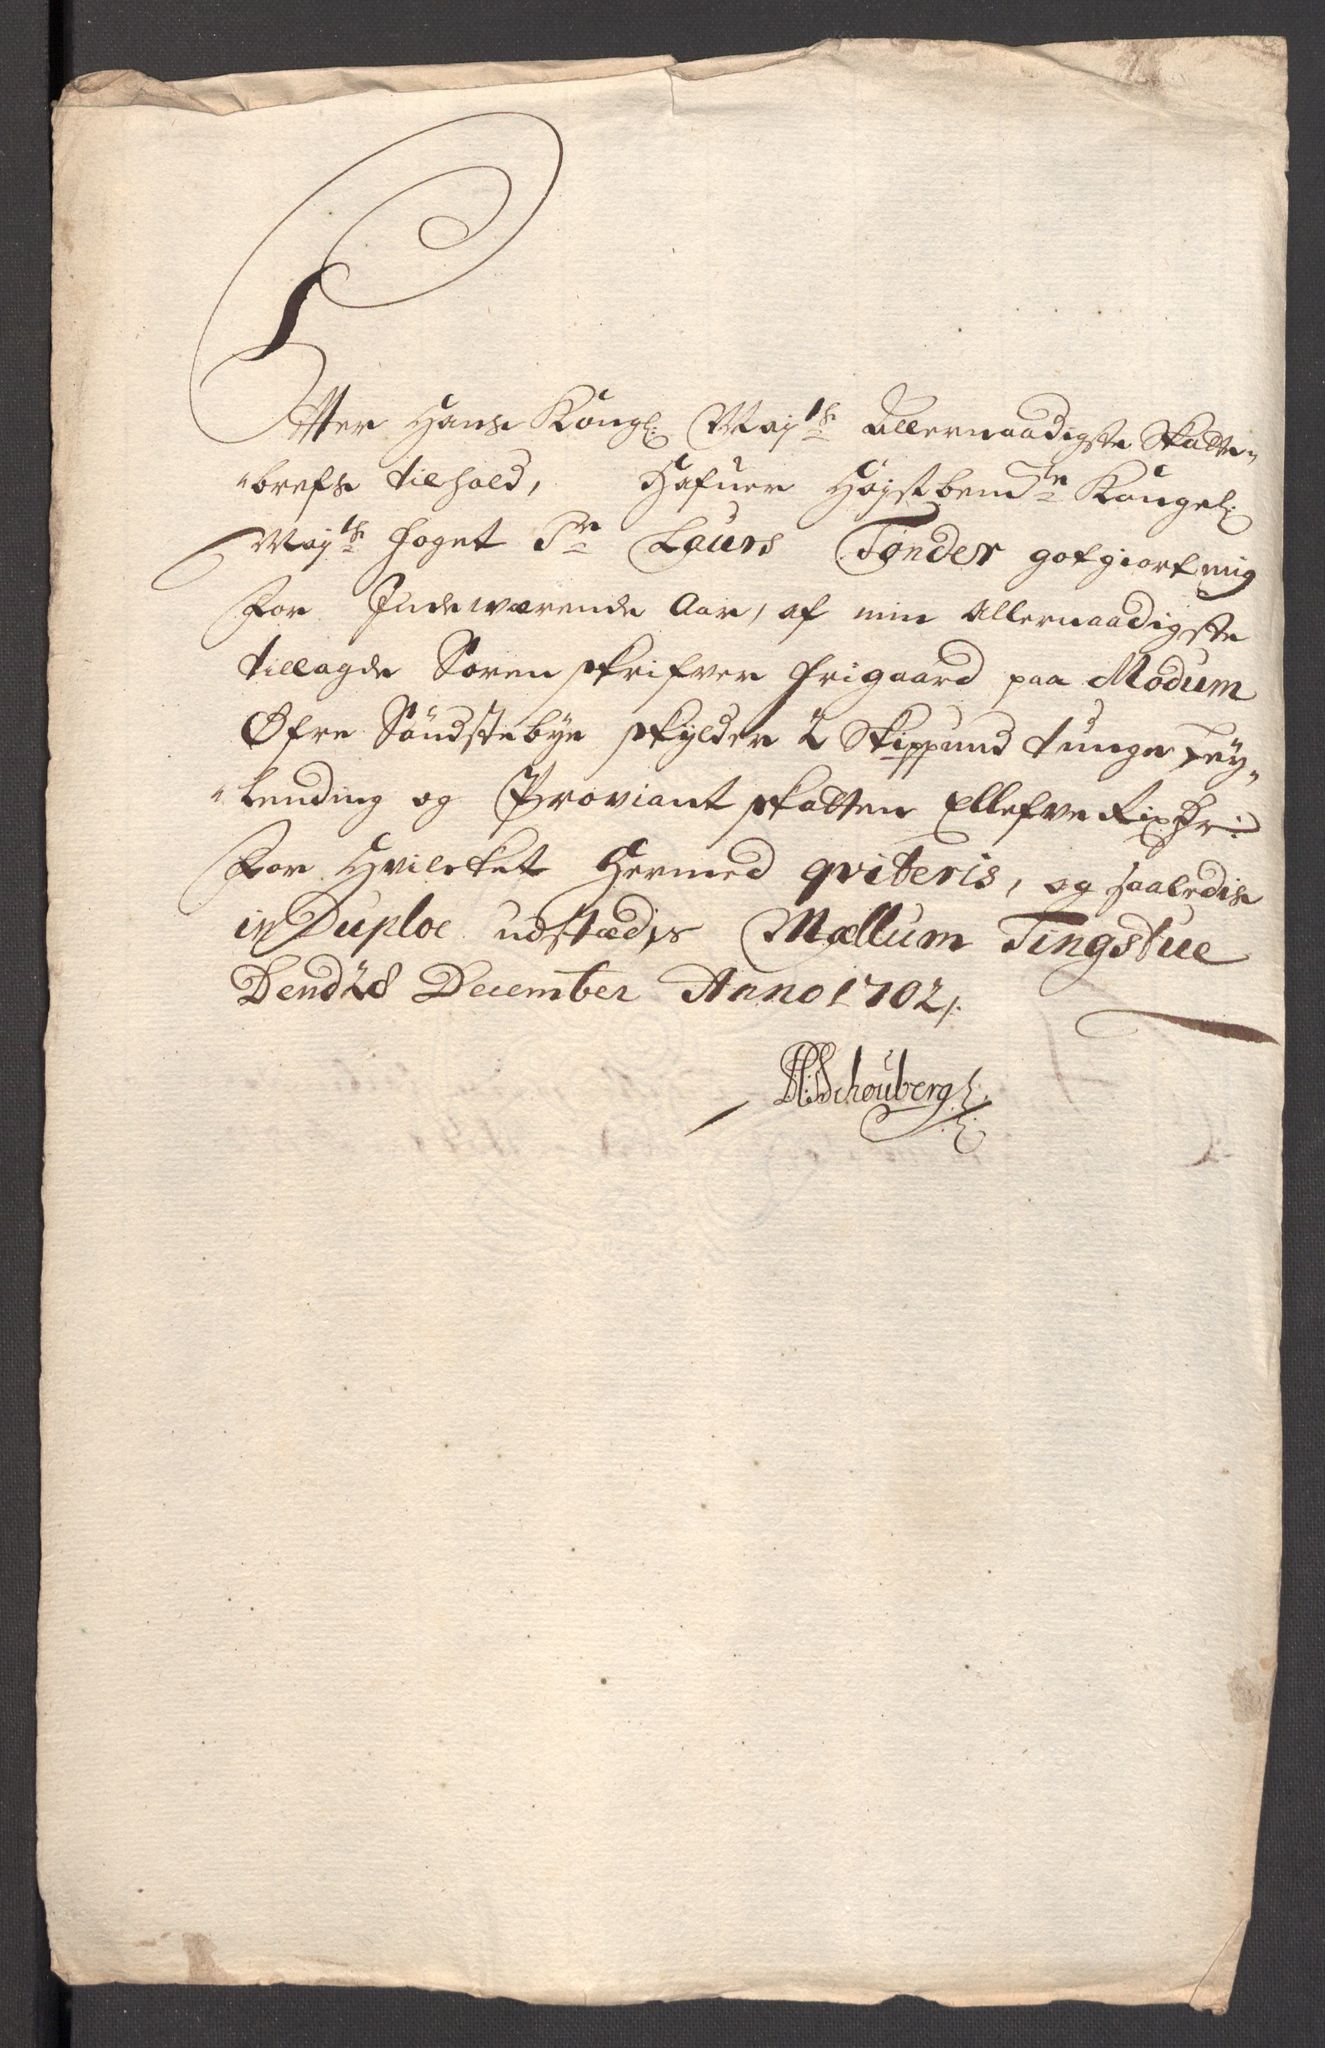 Efter Hans Kongl: Maijts Allernaadigste Skatte-
brefs tilhold, Hafuer Højstbemte Kongel:
Maijts Foget Sr Laurs Tønder gotgiort mig
For Indeværende Aar, af min Allernaadigste
tillagde Sorenskrifver frigaard paa Modum
Øfre Sundstebye skylder 2 Skippund tunge Ley-
lending og Proviant skatten Ellefve Rixdr:
For Hvilcket Hermed qviteris, og saaledis
in Duploe udstædis Mællum Tingstue
Dend 28 December Anno 1702/.
H: Schouberg